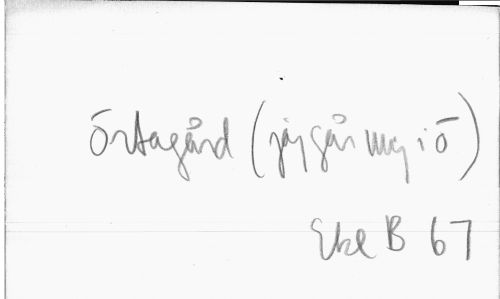 Örtagård (jäg går mej i ō)
Eke B 67